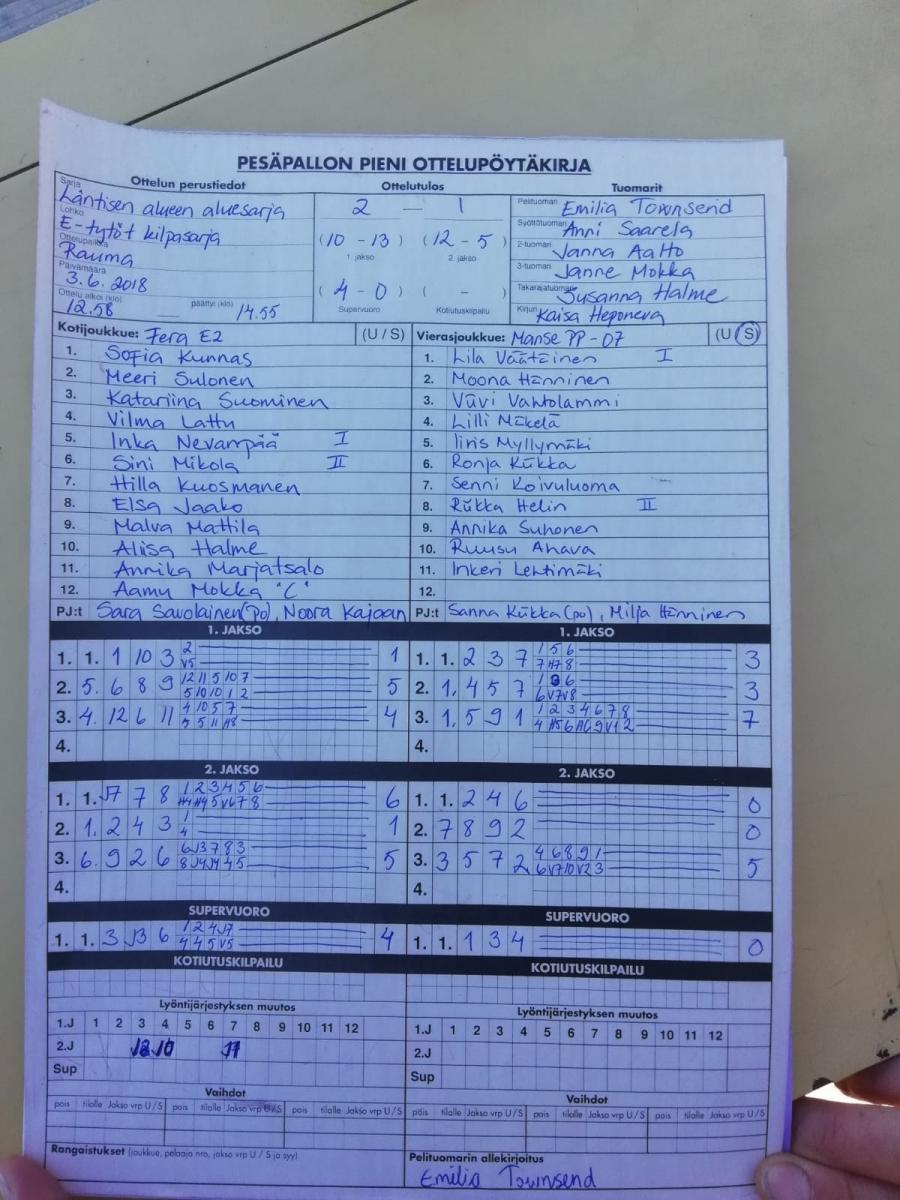 PESÄPALLON PIENI OTTELUPÖYTÄKIRJA
Ottelun perustiedot Ottelutulos Tuomarit
Sarja Läntisen alueen aluesarja
Lohko E-tytöt kilpasarja
Ottelupaikka Rauma
Päivämäärä 3.6.2018
Ottelu alkoi (klo) 12.58 päättyi (klo) 14.55
2 — 1
(10 - 13) (12 - 5)
1. jakso 2. jakso
(4 - 0) ( - )
Supervuoro Kotiutuskilpailu
Pelituomari Emilia Townsend
Syöttötuomari Anni Saarela
2-tuomari Janna Aalto
3-tuomari Janne Mokka
Takarajatuomari Susanna Halme
Kirjuri Kaisa Heponeva
Kotijoukkue: Fera E2 (U / S)
1. Sofia Kunnas
2. Meeri Sulonen
3. Katariina Suominen
4. Vilma Lattu
5. Inka Nevanpää I
6. Sini Mikola II
7. Hilla Kuosmanen
8. Elsa Jaako
9. Malva Mattila
10. Aliisa Halme
11. Annika Marjatsalo
12. Aamu Mokka "C"
PJ:t Sara Savolainen (po), Noora Kajaan
Vierasjoukkue: Manse PP -07 (U / S)
1. Lila Väätäinen I
2. Moona Hänninen
3. Viivi Vahtolammi
4. Lilli Mäkelä
5. Iiris Myllymäki
6. Ronja Kiikka
7. Senni Koivuluoma
8. Riikka Helin II
9. Annika Suhonen
10. Ruusu Ahava
11. Inkeri Lehtimäki
12.
PJ:t Sanna Kiikka (po), Milja Hänninen
1. JAKSO
1. 1. 1 10 3 2 V5 1
2. 5. 6 8 9 12 11 5 10 7 5 10 10 1 2 5
3. 4. 12 6 11 4 10 5 7 4
4.
1. JAKSO
1. 1. 2 3 7 1 5 6 3
2. 1. 4 5 7 6 V7 V8 3
3. 1. 5 9 1 1 2 3 4 6 7 8 7
4.
2. JAKSO
1. 1. 7 8 1 2 3 4 5 6 6
2. 1. 2 4 3 1 4 1
3. 6. 9 2 6 5
4.
2. JAKSO
1. 1. 2 4 6 0
2. 7 8 9 2 0
3. 3 5 7 2 4 6 8 9 1 6 V7 10 V2 3 5
4.
SUPERVUORO
1. 1. 3 J3 6 1 2 4 J7 4 4 5 V5 4
SUPERVUORO
1. 1. 1 3 4 0
KOTIUTUSKILPAILU
KOTIUTUSKILPAILU
Lyöntijärjestyksen muutos
1.J 1 2 3 4 5 6 7 8 9 10 11 12
2.J
Sup
Lyöntijärjestyksen muutos
1.J 1 2 3 4 5 6 7 8 9 10 11 12
2.J
Sup
Vaihdot
pois tilalle Jakso vrp U/S pois tilalle Jakso vrp U/S pois tilalle Jakso vrp U/S
Vaihdot
pois tilalle Jakso vrp U/S pois tilalle Jakso vrp U/S pois tilalle Jakso vrp U/S
Rangaistukset (joukkue, pelaaja nro, jakso vrp U / S ja syy)
Pelituomarin allekirjoitus
Emilia Townsend